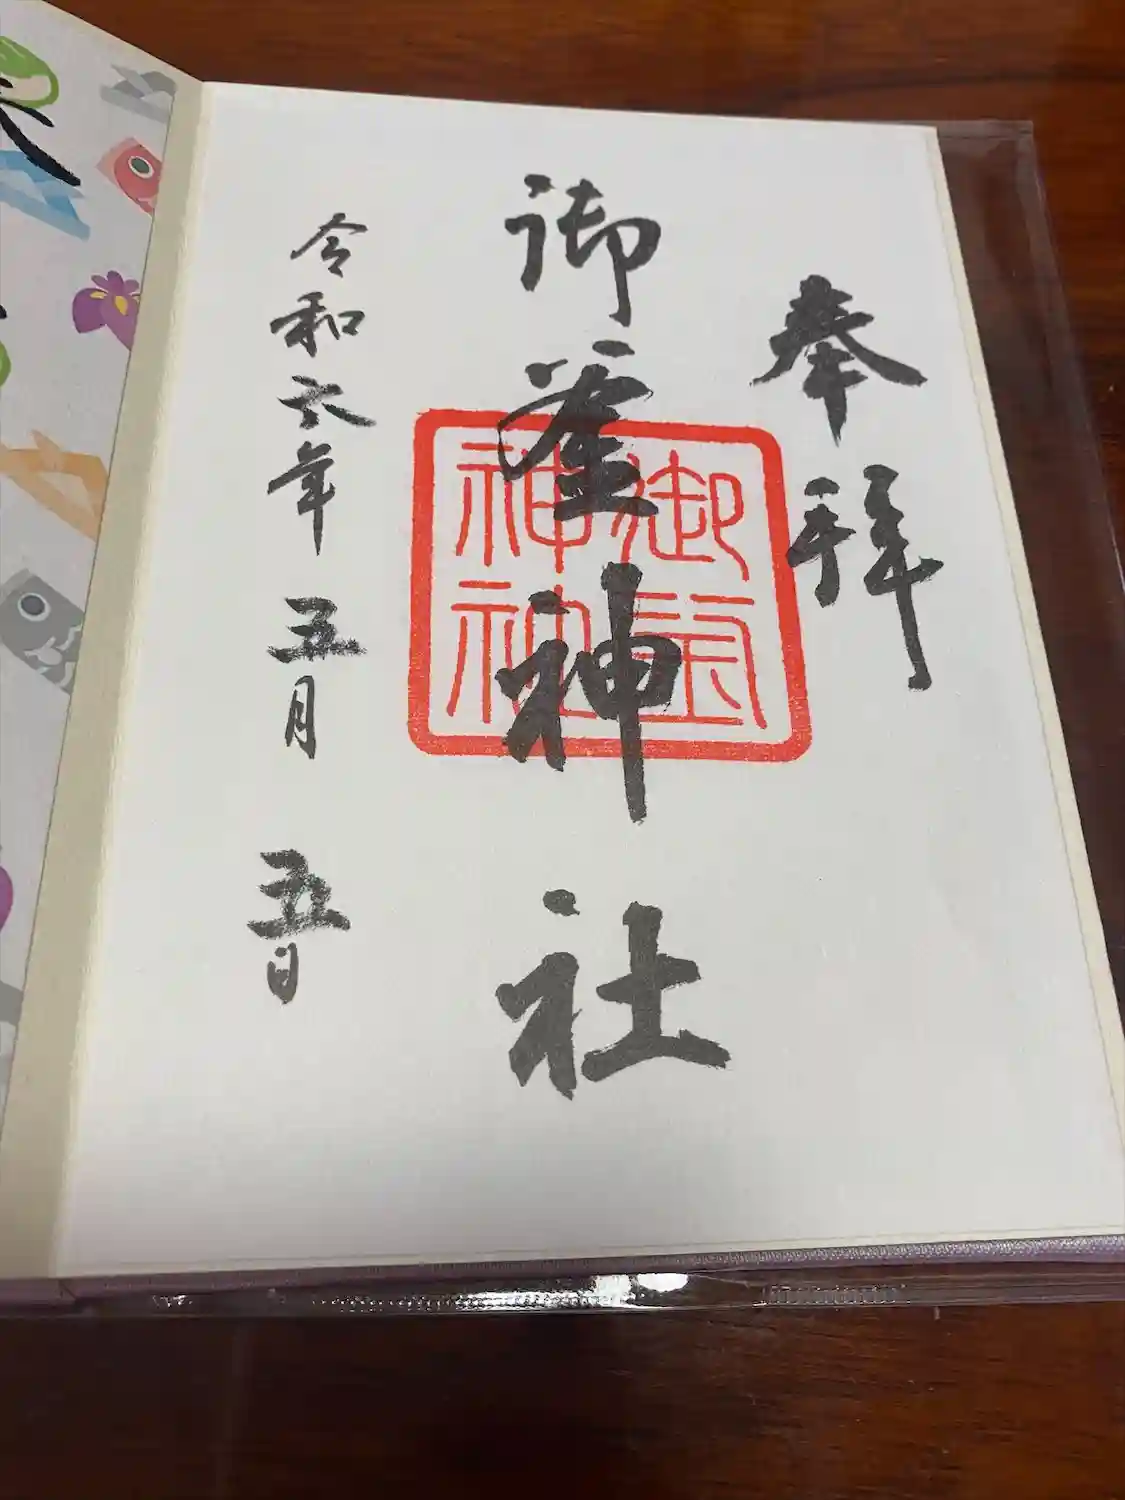 奉拝
御釜神社
令和六年五月五日
御釜神社